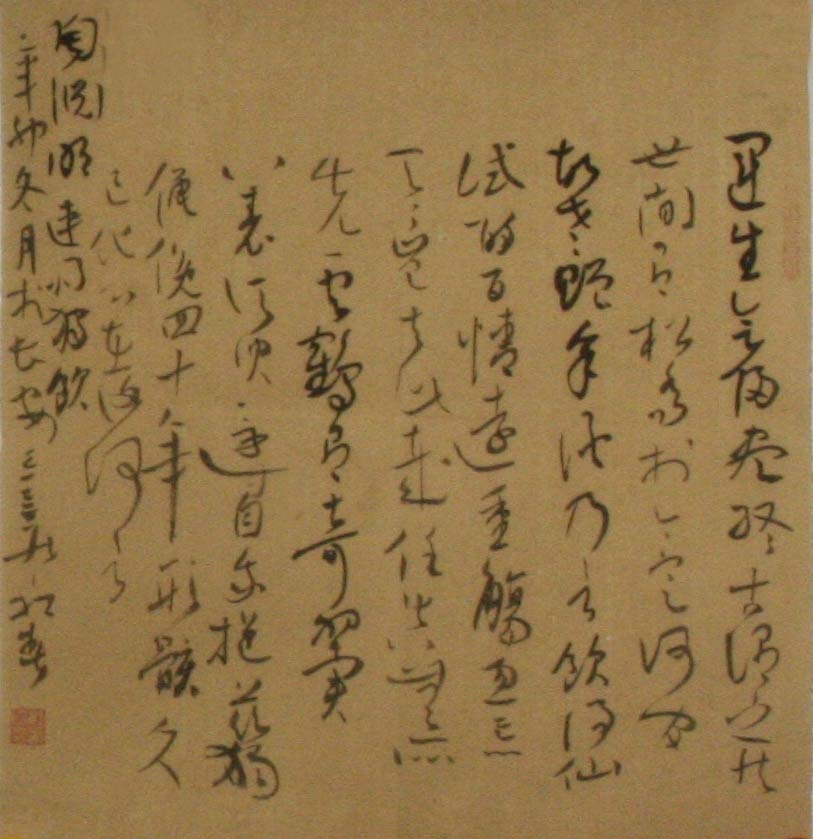 運生會歸盡終古謂之然
世間有松喬於今定何間
故老贈余酒乃言飲得仙
試酌百情遠重觴忽忘
天天豈去此哉任真無所
先雲鶴有奇翼
八表須臾還自我抱茲獨
僶俛四十年形骸久
已化心在復何言
陶淵明連雨獨飲
辛卯冬月於長安